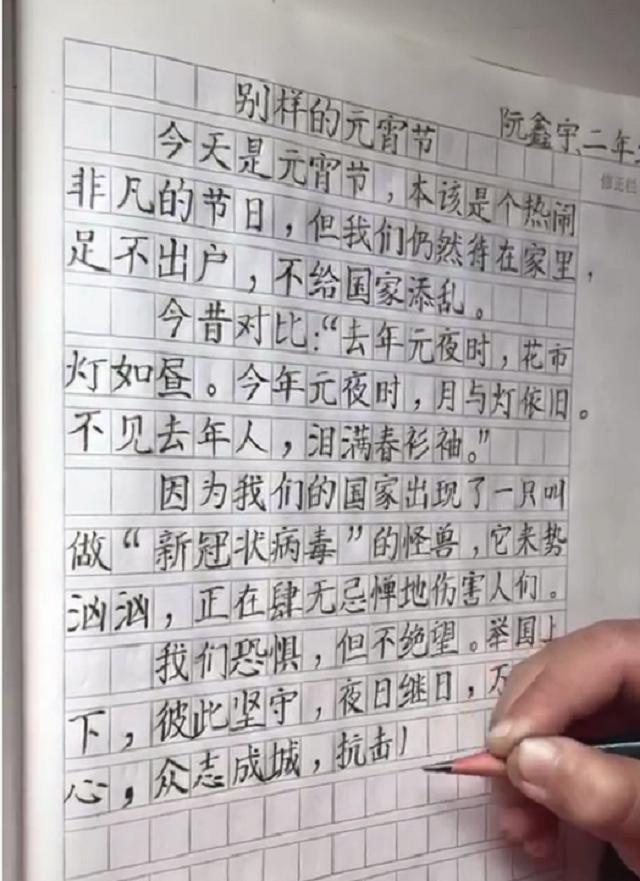 别样的元宵节 阮鑫宇 二年
今天是元宵节，本该是个热闹
非凡的节日，但我们仍然待在家里，
足不出户，不给国家添乱。
今昔对比：“去年元夜时，花市
灯如昼。今年元夜时，月与灯依旧。
不见去年人，泪满春衫袖。”
因为我们的国家出现了一只叫
做“新冠状病毒”的怪兽，它来势
汹汹，正在肆无忌惮地伤害人们。
我们恐惧，但不绝望。举国上
下，彼此坚守，夜日继日，万
心，众志成城，抗击